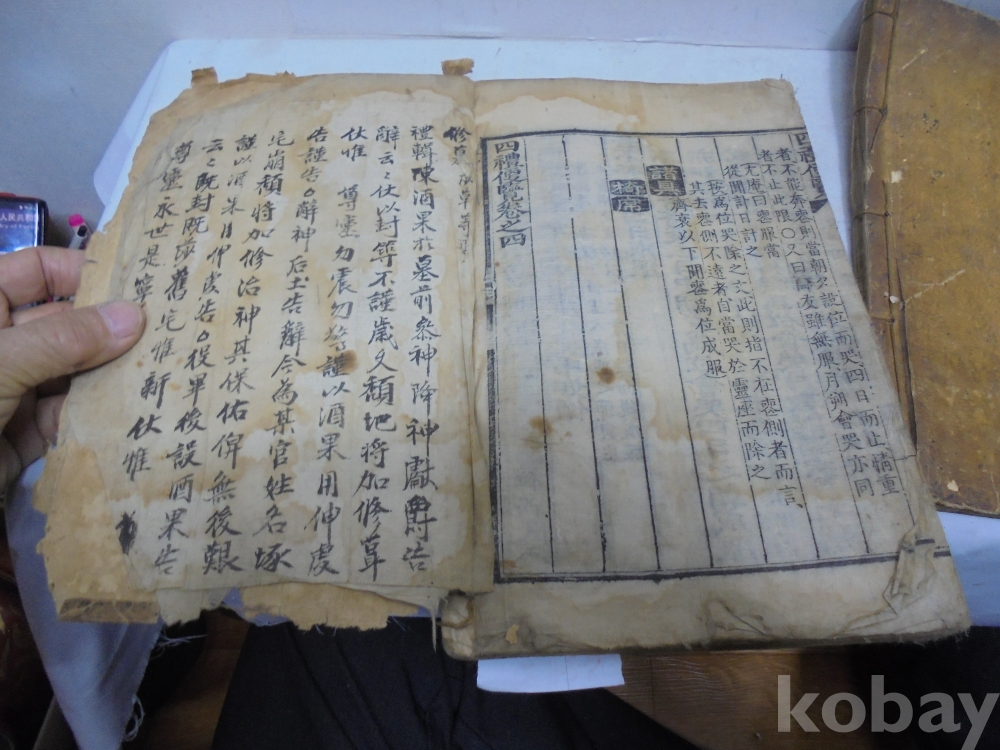 禮輯陳酒果於墓前參神降神獻爵告
辭云云伏以封筑不謹歲久頹圮將加修葺
伏惟 尊靈勿震勿驚謹以酒果用伸虔
告謹告○辭神后土告辭今為某官姓名
宅崩頹將加修治神其保佑俾無後艱
謹以酒果目伸虔告○役畢後設酒果告
云云既封既築舊宅惟新伏惟
尊靈永世是寧
者不能奔喪則當朝夕設位而哭四日而止情重
者不止此限○又曰師友雖無服月朔會哭亦同
尤庵曰喪服當
從聞訃日計之
按為位哭除之文此則指不在喪側者而言
其去喪側不遠者自當哭於靈座而除之
齊衰以下聞喪為位成服
諸具
椅
席
四禮便覽卷之四
kobay